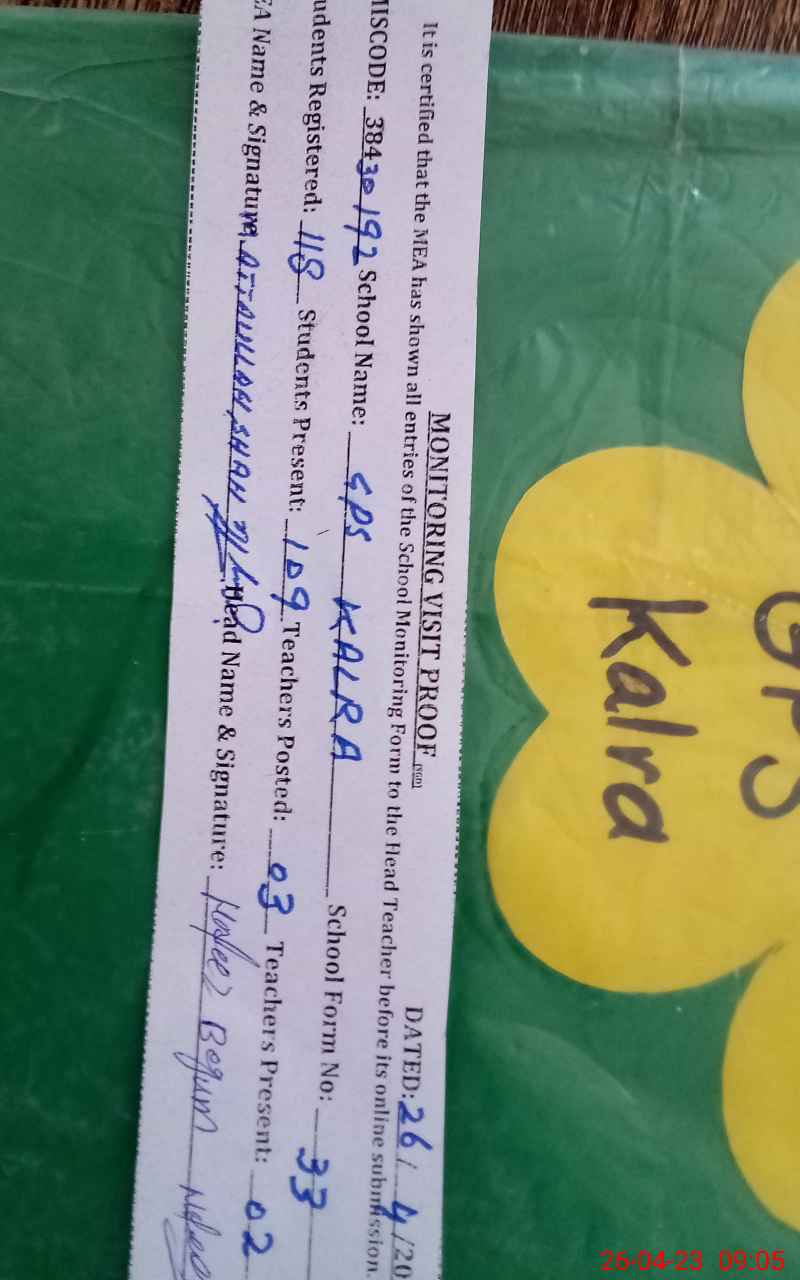 MONITORING VISIT PROOF (SGD) DATED: 26/4/20
It is certified that the MEA has shown all entries of the School Monitoring Form to the Head Teacher before its online submission.
MISCODE: 38430192 School Name: GPS KALRA School Form No: 33
udents Registered: 118 Students Present: 109 Teachers Posted: 03 Teachers Present: 02
EA Name & Signature: ATTAULLAH SHAH Head Name & Signature: Hafeez Begum
GPS
Kalra
26-04-23 09:05